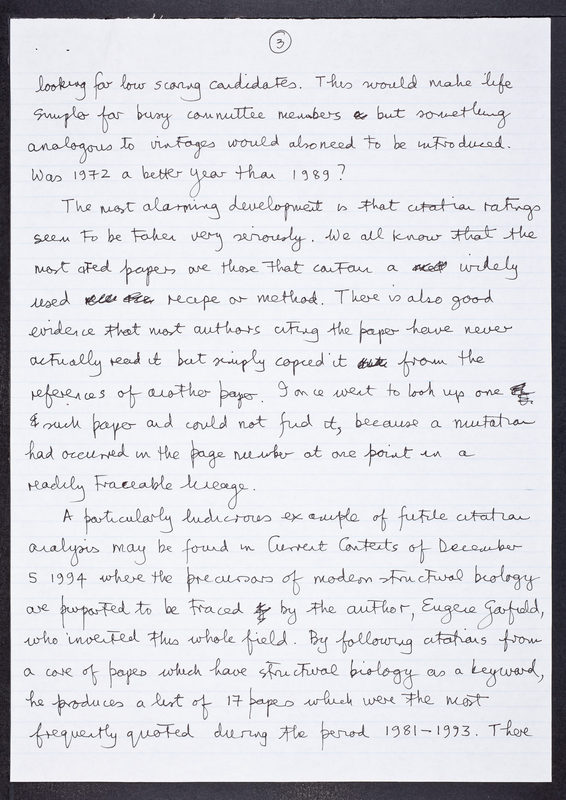 3
looking for low scoring candidates. This would make life
simpler for busy committee members but something
analogous to vintages would also need to be introduced.
Was 1972 a better year than 1989?
The most alarming development is that citation ratings
seem to be taken very seriously. We all know that the
most cited papers are those that contain a widely
used recipe or method. There is also good
evidence that most authors citing the paper have never
actually read it but simply copied it from the
references of another paper. I once went to look up one
such paper and could not find it, because a mutation
had occurred in the page number at one point in a
readily traceable lineage.
A particularly ludicrous example of futile citation
analysis may be found in Current Contents of December
5 1994 where the precursors of modern structural biology
are purported to be traced by the author, Eugene Garfield,
who invented this whole field. By following citations from
a core of papers which have structural biology as a keyword,
he produces a list of 17 papers which were the most
frequently quoted during the period 1981-1993. There